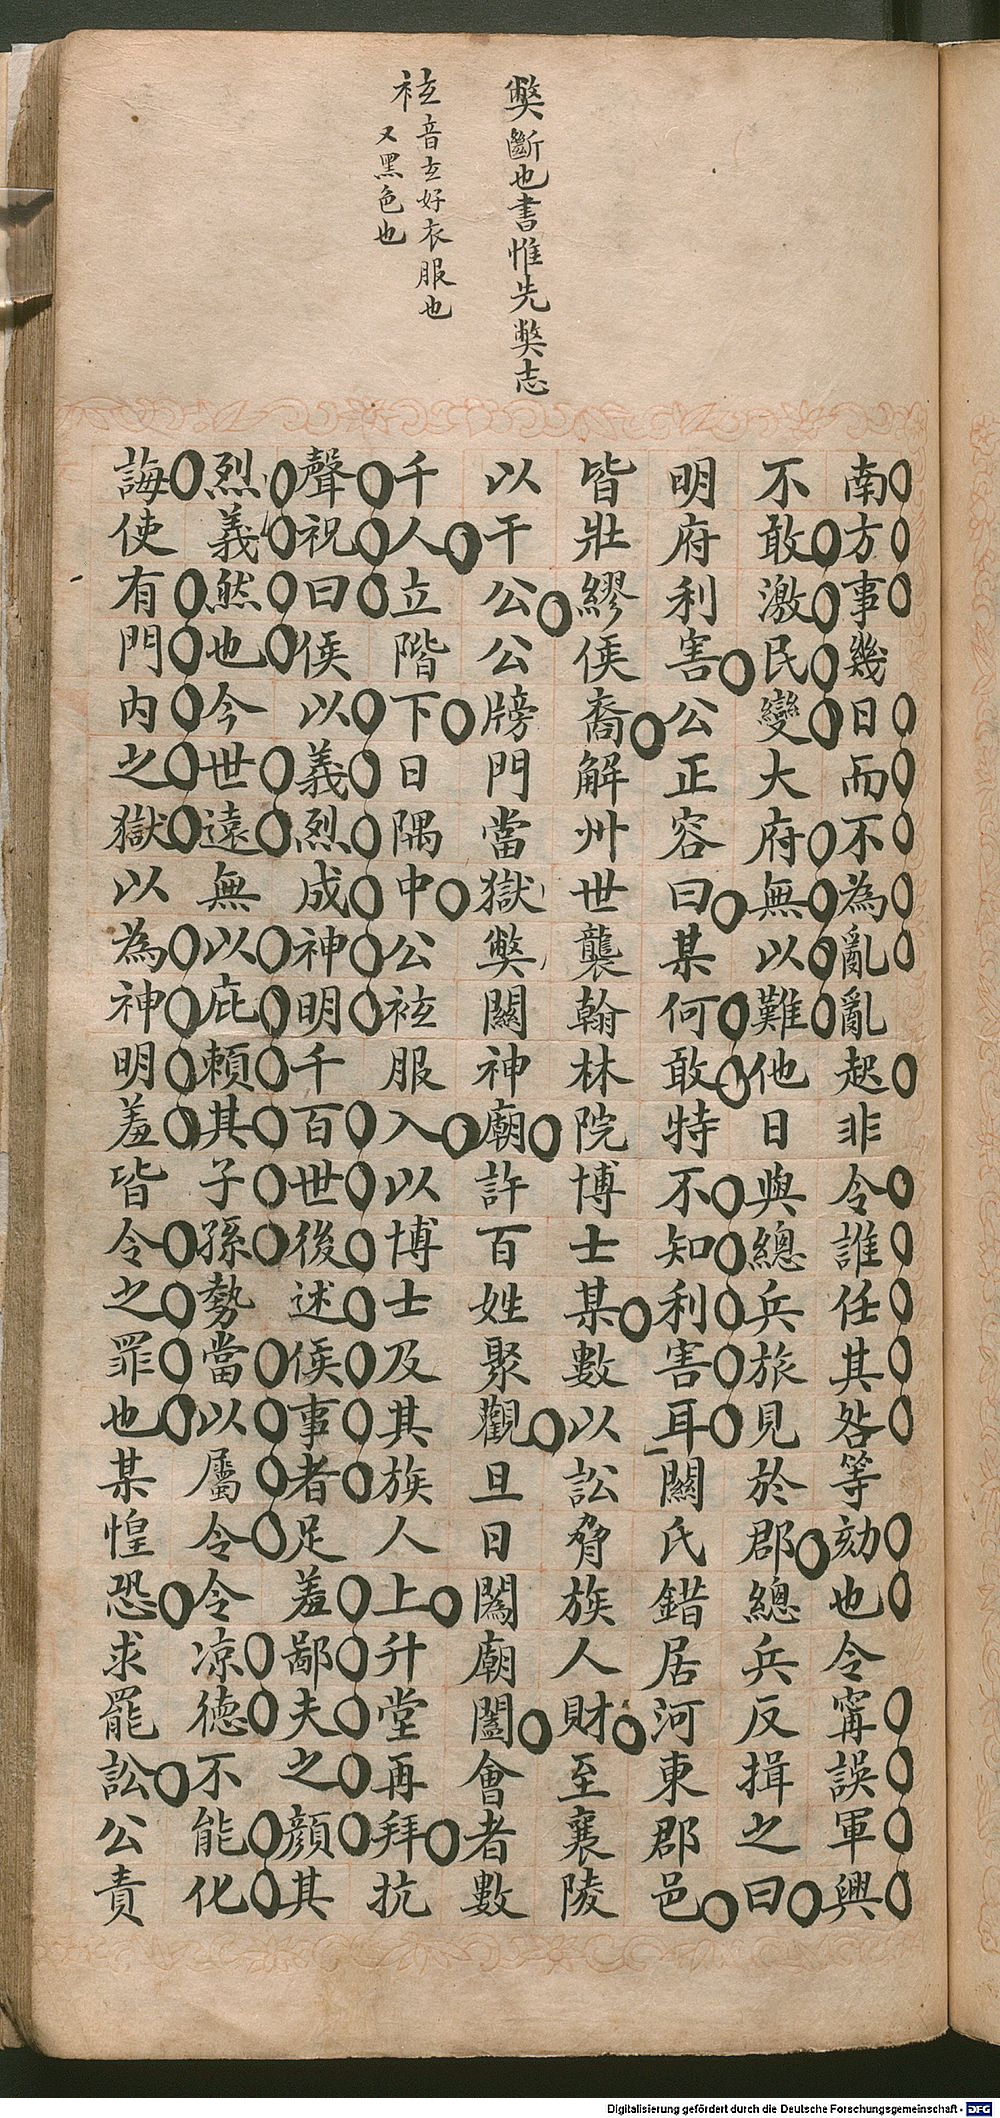 獘斷也書惟先獘志
袨音玄好衣服也
又黑色也
南方事幾日而不為亂亂起非令誰任其咎等劾也令寗誤軍興
不敢激民變大府無以難他日與總兵旅見於郡總兵反揖之曰
明府利害公正容曰某何敢特不知利害耳關氏錯居河東郡邑
皆壯繆侯裔解州世襲翰林院博士某數以訟脅族人財至襄陵
以干公公牓門當獄獘關神廟許百姓聚觀旦日闔廟闔會者數
千人立階下日隅中公袨服入以博士及其族人上升堂再拜抗
聲祝曰侯以義烈成神明千百世後述侯事者足羞鄙夫之顏其
烈義然也今世遠無以庇賴其子孫勢當以屬令令凉德不能化
誨使有門內之獄以為神明羞皆令之罪也某惶恐求罷訟公責
Digitalisierung gefördert durch die Deutsche Forschungsgemeinschaft - DFG